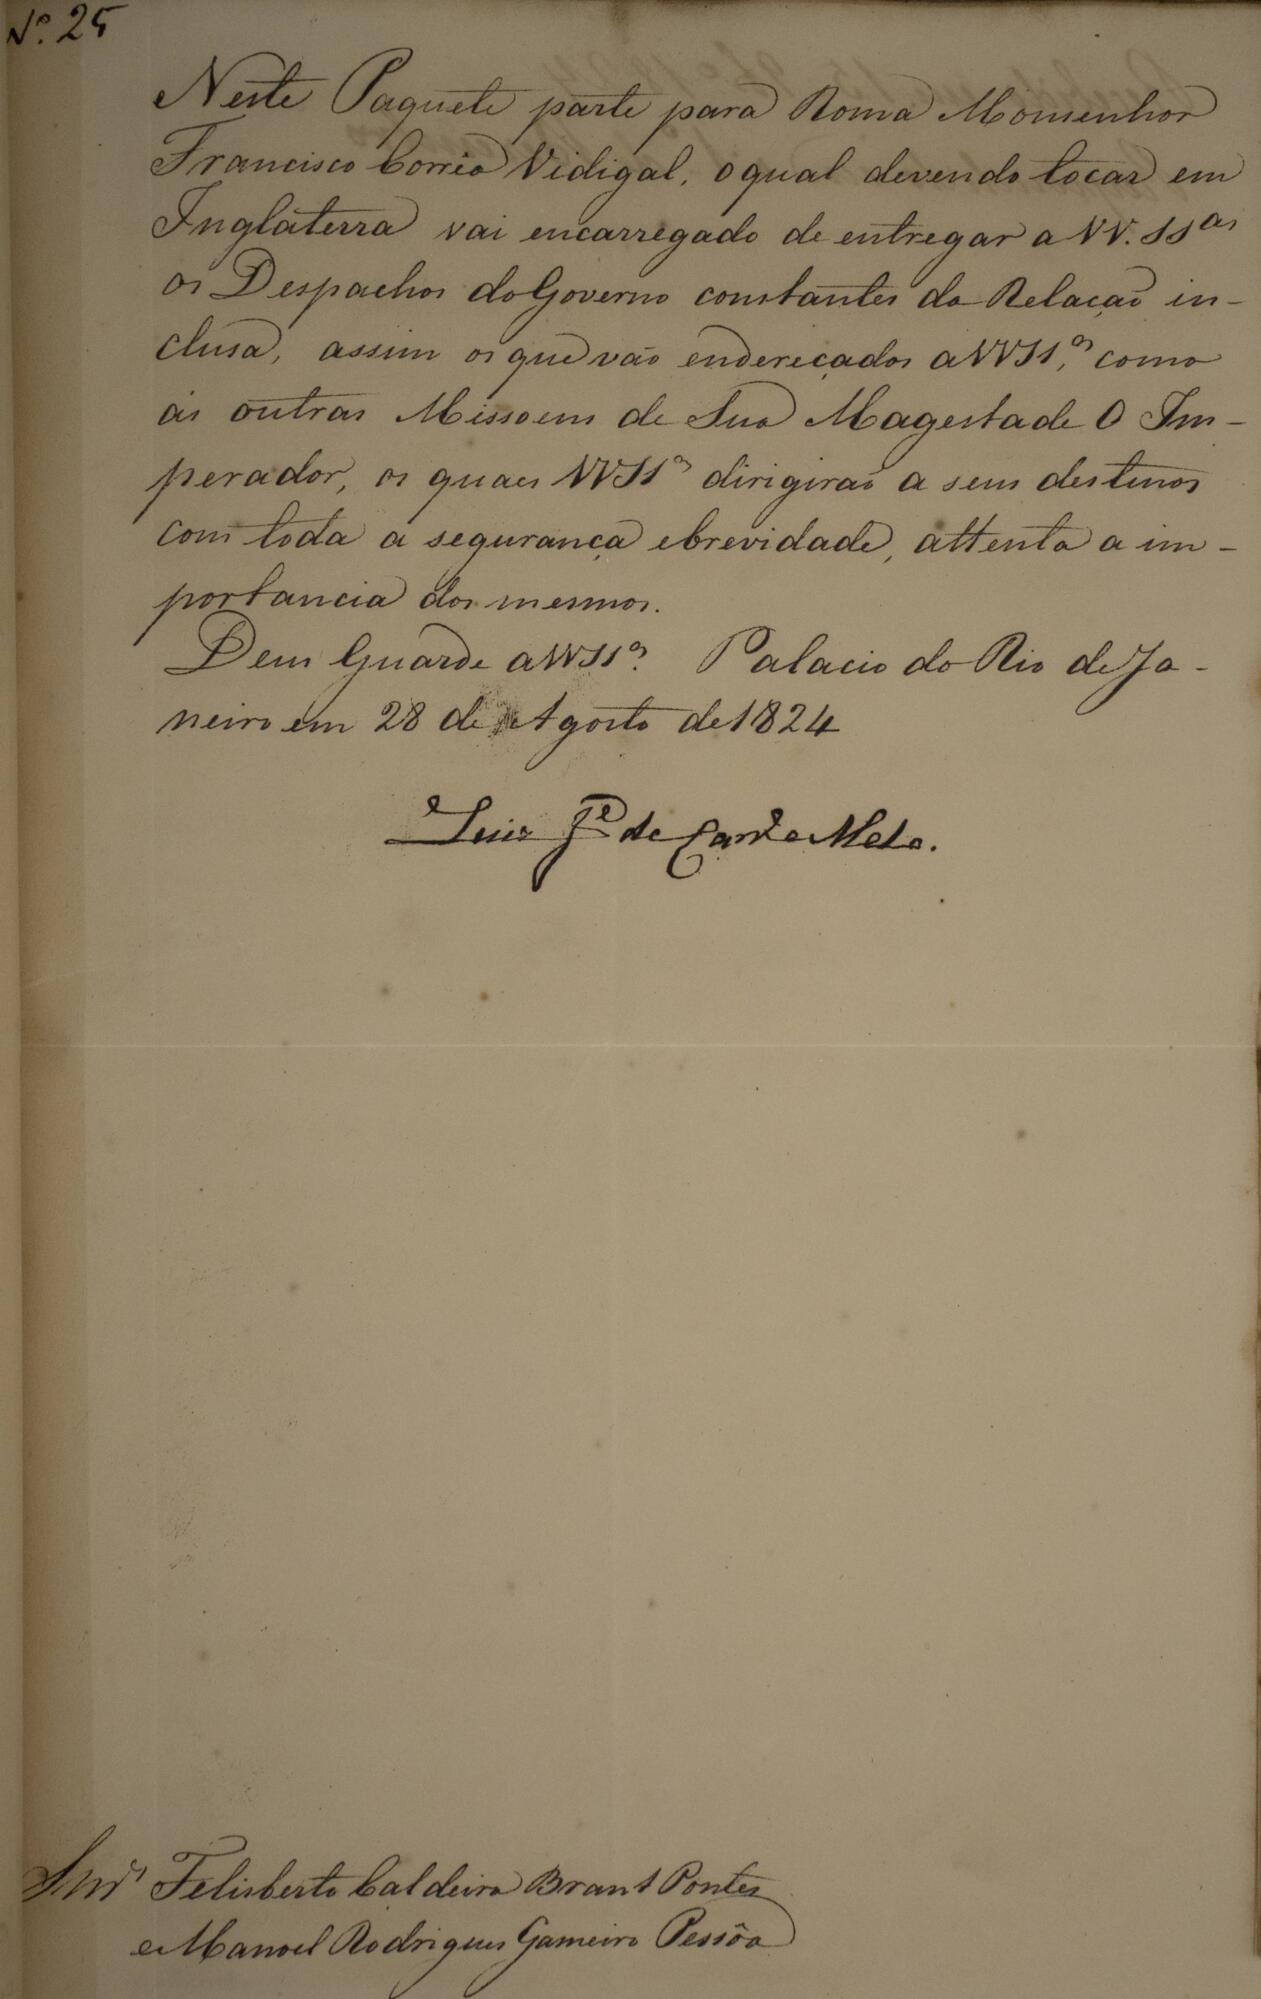 Nº. 25
Neste Paquete parte para Roma Monsenhor
Francisco Corrêa Vidigal, o qual devendo tocar em
Inglaterra vai encarregado de entregar a VV. SSas
os Despachos do Governo constantes da Relação in-
clusa, assim os que vão endereçados a VVSSas, como
ás outras Missoens de Sua Magestade O Im-
perador, os quaes VVSSas dirigiraõ a seus destinos
com toda a segurança e brevidade, attenta a im-
portancia dos mesmos.
Deus Guarde a VVSSas. Palacio do Rio de Ja-
neiro em 28 de Agosto de 1824
Luiz Je de Carvo e Mello.
Snrs Felisberto Caldeira Brant Pontes
e Manoel Rodrigues Gameiro Pessôa